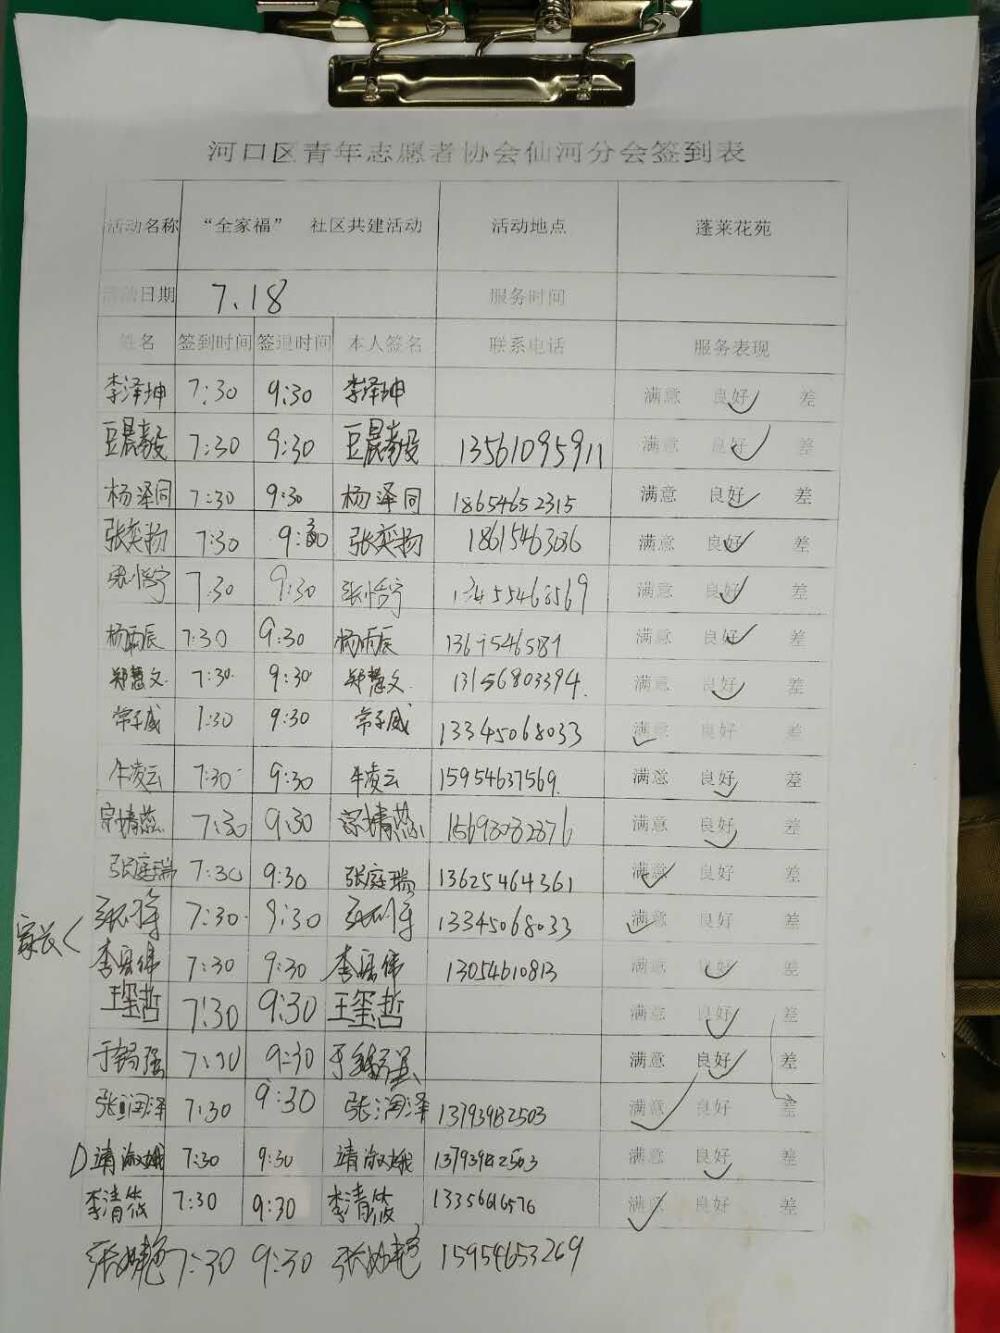 河口区青年志愿者协会仙河分会签到表
活动名称 “全家福” 社区共建活动 活动地点 蓬莱花苑
活动日期 7.18 服务时间
姓名 签到时间 签退时间 本人签名 联系电话 服务表现
李泽坤 7:30 9:30 李泽坤 满意 良好 差
豆晨毅 7:30 9:30 豆晨毅 13561095911 满意 良好 差
杨泽同 7:30 9:30 杨泽同 18654652315 满意 良好 差
张奕扬 7:30 9:30 张奕扬 满意 良好 差
7:30 9:30 张恬宁 13455468569 满意 良好 差
杨炳辰 7:30 9:30 杨炳辰 满意 良好 差
郑慧文. 7:30. 9:30 郑慧文. 13156803394. 满意 良好 差
常子威 7:30 9:30 常子威 13345068033 满意 良好 差
牛凌云 7:30 9:30 牛凌云 15954637569. 满意 良好 差
宗靖蕊 7:30 9:30 宗靖蕊 满意 良好 差
张庭瑞 7:30 9:30 张庭瑞 13625464361 满意 良好 差
家长 7:30. 9:30 13345068033 满意 良好 差
7:30 9:30 13054610813 满意 良好 差
王玺哲 7:30 9:30 王玺哲 满意 良好 差
7:30 9:30 满意 良好 差
张润泽 7:30 9:30 张润泽 13793982503 满意 良好 差
靖淑娥 7:30 9:30 靖淑娥 13793982503 满意 良好 差
李清筱 7:30 9:30 李清筱 满意 良好 差
7:30 9:30 15954653269